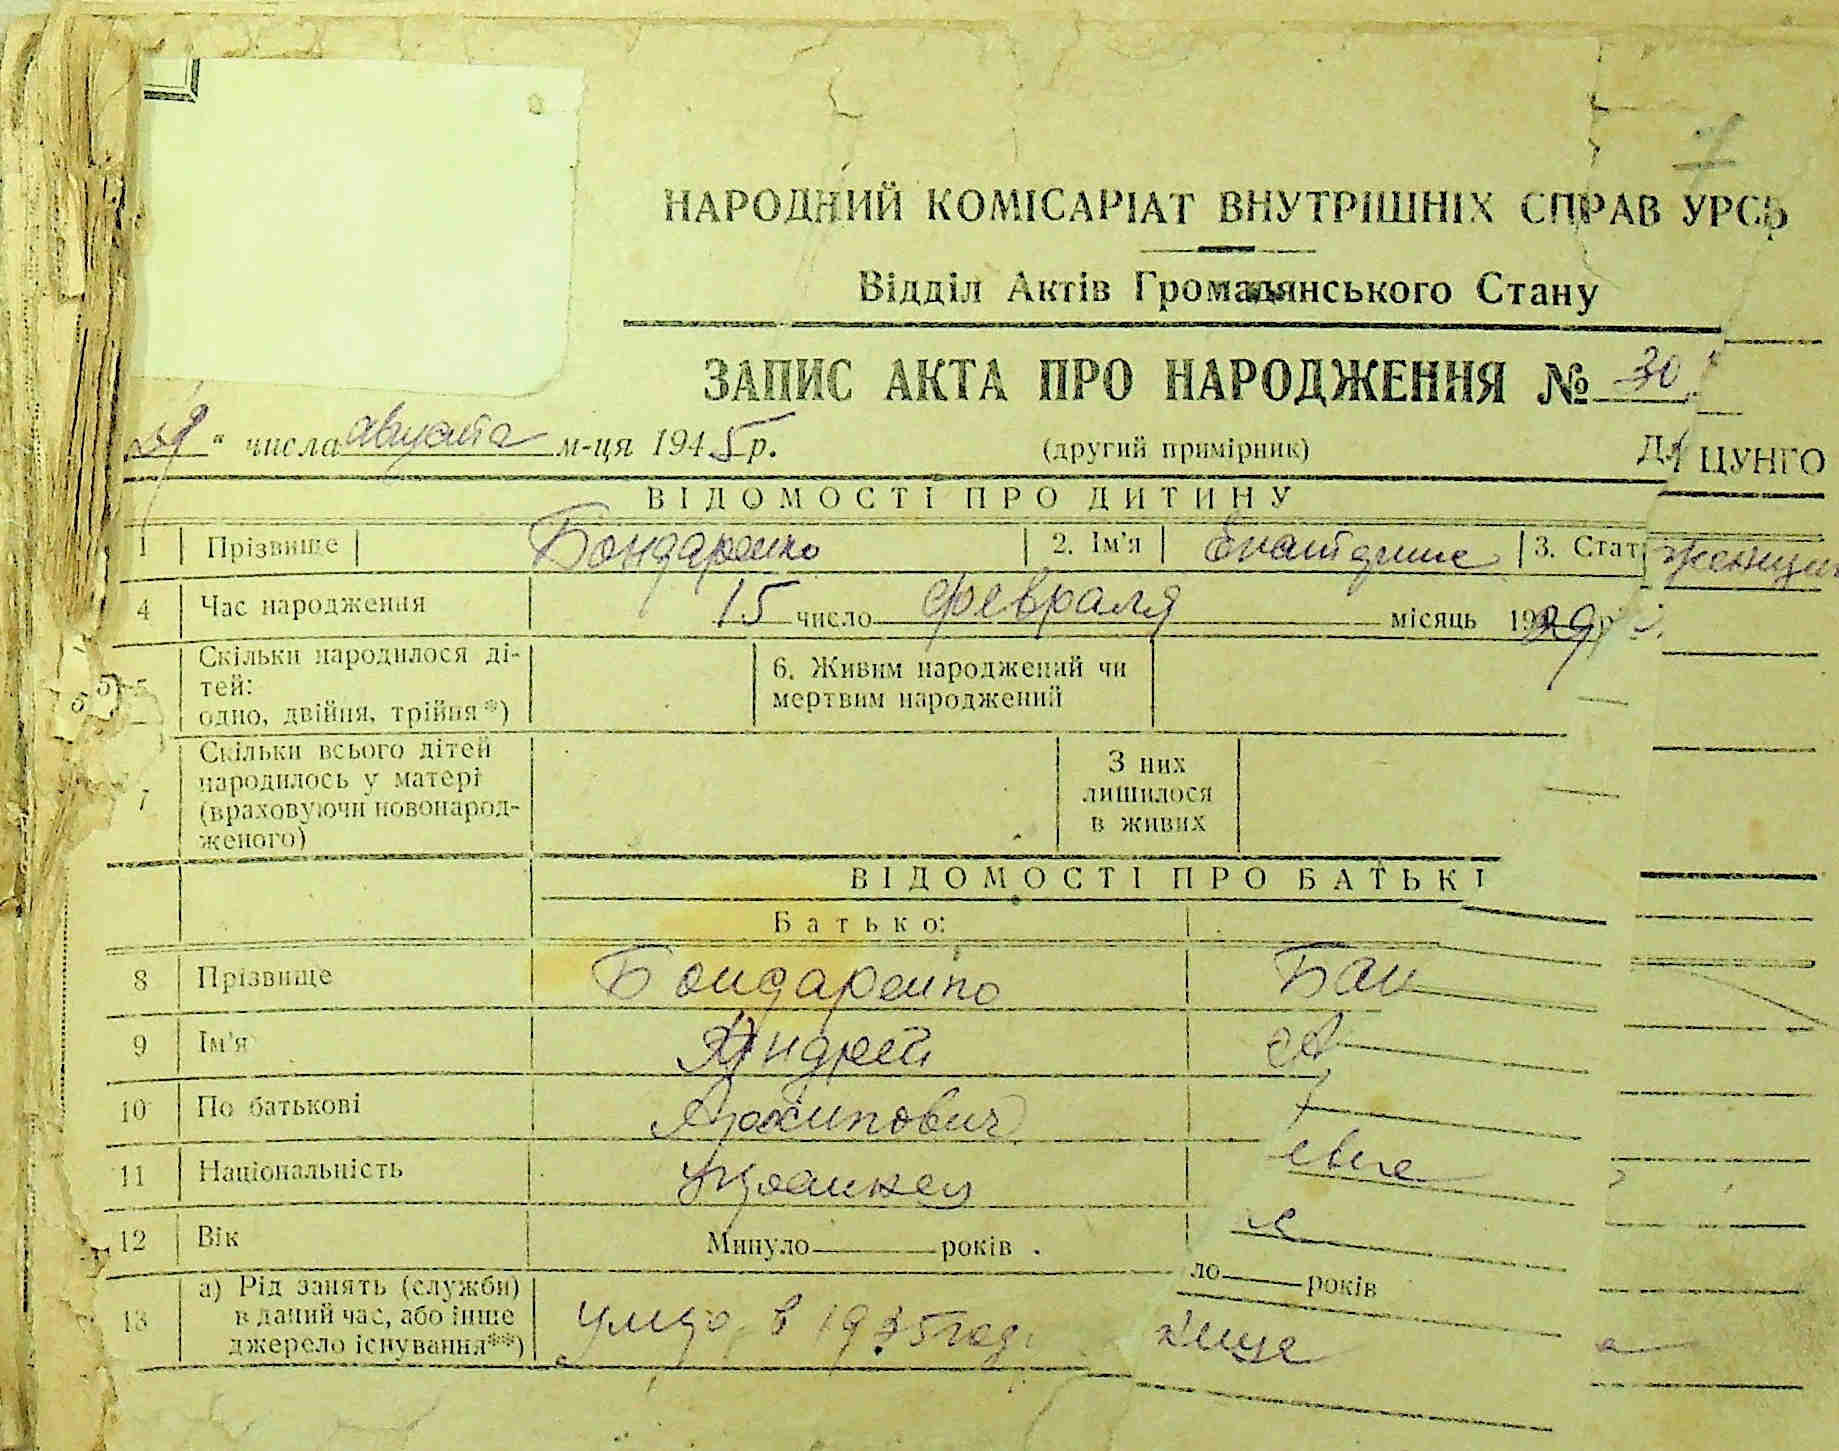 НАРОДНИЙ КОМІСАРІАТ ВНУТРІШНІХ СПРАВ УРСР
Відділ Актів Громадянського Стану
ЗАПИС АКТА ПРО НАРОДЖЕННЯ № 30
29 " числа августа м-ця 1945 р. (другий примірник) Дл ЦУНГО
ВІДОМОСТІ ПРО ДИТИНУ
1 Прізвище Бондаренко 2. Ім'я Екатерина 3. Стат женщин
4 Час народження 15 число февраля місяць 1929 р
5 Скільки народилося ді-
тей:
одно, двійня, трійня*)
6. Живим народжений чи
мертвим народжений
7 Скільки всього дітей
народилось у матері
(враховуючи новонарод-
женого)
З них
лишилося
в живих
ВІДОМОСТІ ПРО БАТЬКІ
Батько:
8 Прізвище Бондаренко Бон
9 Ім'я Андрей
10 По батькові Архипович
11 Національність Украинец
12 Вік Минуло років . ло років
13 а) Рід занять (служби)
в даний час, або інше
джерело існування**)
умер в 1935 год